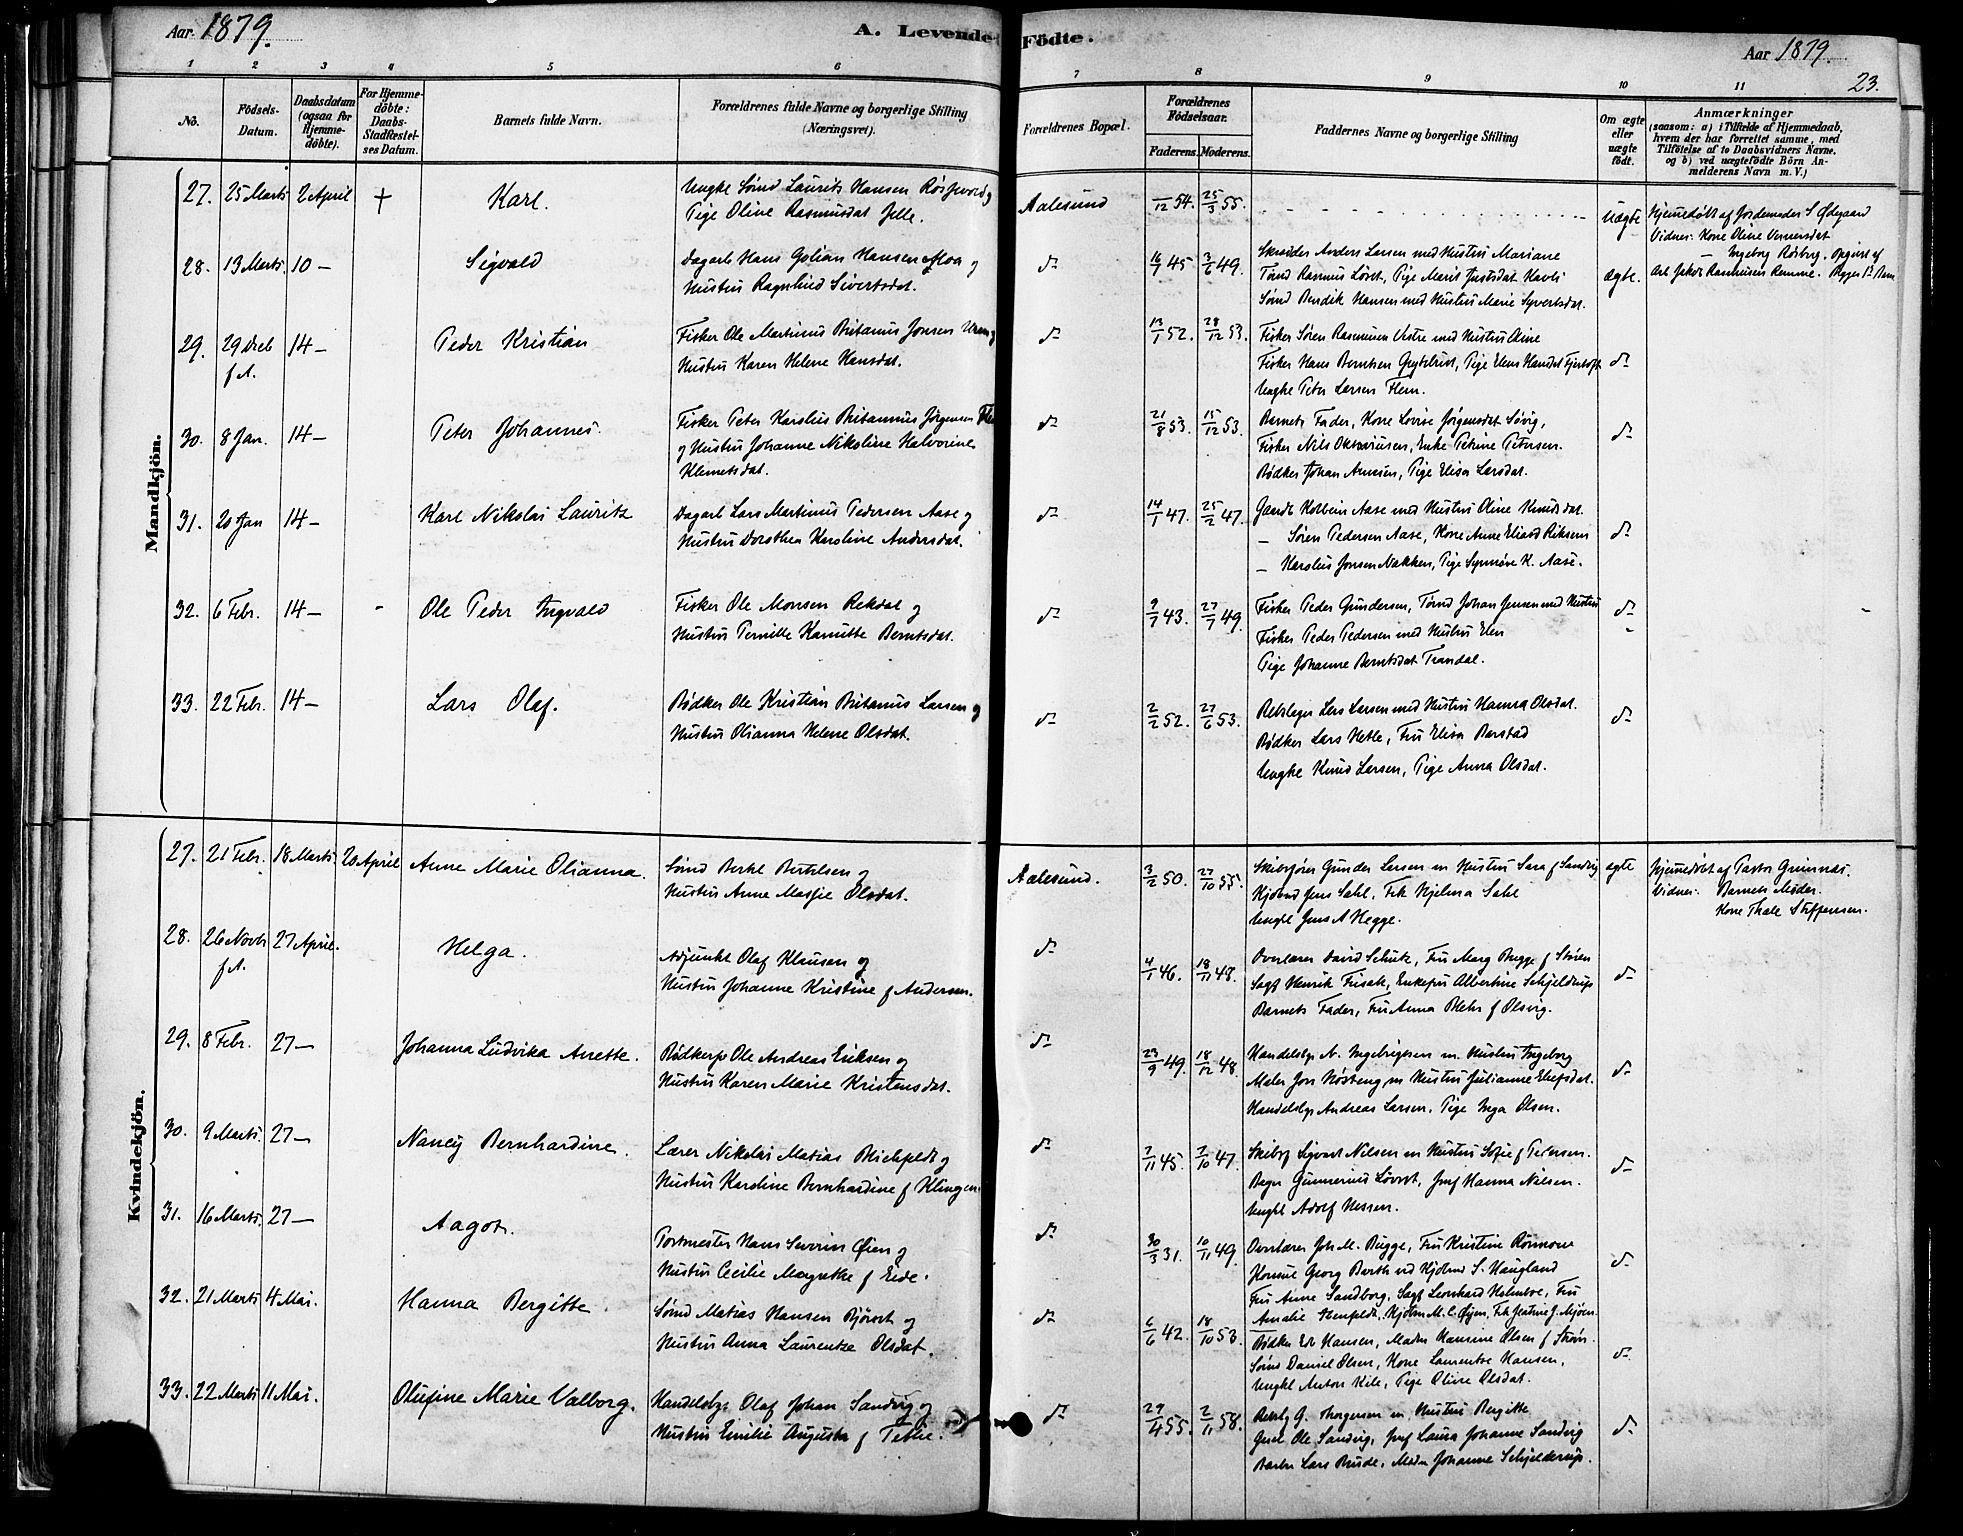 Aar 1879.
A. Levende Födte.
Aar 1879.
23.
1 2 3 4 5 6 7 8 9 10 11
No.
Födsels-Datum.
Daabsdatum (ogsaa for Hjemmedöbte).
For Hjemmedöbte: Daabs-Stadfæstelses Datum.
Barnets fulde Navn.
Forældrenes fulde Navne og borgerlige Stilling (Næringsvei).
Forældrenes Bopæl.
Forældrenes Födselsaar.
Faderens. Moderens.
Faddernes Navne og borgerlige Stilling
Om ægte eller uægte födt.
Anmærkninger
(saasom: a) i Tilfælde af Hjemmedaab,
hvem der har forrettet samme, med
Tilföielse af to Daabsvidners Navne,
og b) ved uægtefödte Börn An-
melderens Navn m. V.)
Mandkjön.
27. 25 Marts 2 April + Karl.
Ungke Sømd Laurits Hansen
Pige Oline Rasmusdat Jelle.
Aalesund
/12 54. 25/3 55.
Uægte
Hjemmedøbt af Jordemoder S Ødegaard
Vidner: Kone Oline
28. 13 Marts 10 — Sigvald
Dagarb Hans Golian Hansen Moa og
Hustru Ragnhild Sivertsdat.
do
16/7 45 3/6 49.
Skrædder Anders Larsen med Hustru Mariane
Tømd Rasmus Løset, Pige Marit
Sømd Bendik Hansen med Hustru Marie Syvertsdat.
ægte.
29. 29 Decb f.A. 14 — Peder Kristian
Fisker Ole Martinus Britanus Jonsen
Hustru Karen Helene Hansdat.
do
13/1 52. 28/12 53.
Fisker Søren Rasmussen Vestre med Hustru
Fisker Hans Berntsen
Ungke Peter Larsen Flem.
do
30. 8 Jan. 14 — Peter Johannes.
Fisker Peter Karolius Britannus Jørgensen
og Hustru Johanne Nikoline Halvorine
Klemetsdat.
do
21/8 53. 15/12 53.
Barnets Fader, Kone Lovise Jörgensdat Søvig,
Fisker Nils Oktaviusen, Enke Petrine Petersen.
Bødker Johan Arnesen, Pige Elisa Larsdat.
do
31. 20 Jan 14 — Karl Nikolai Lauritz
Dagarb Lars Martinus Pedersen Aase og
Hustru Dorothea Karoline Andersdat.
do
14/1 47. 25/2 47.
Gaardb Kolbein Aase med Hustru Oline Knudsdat.
— Søren Pedersen Aase, Kone Anne
— Karolius Jonsen Nakken, Pige Synnøve K. Aase.
do
32. 6 Febr. 14 — Ole Peder Ingvald
Fisker Ole Monsen Rekdal og
Hustru Pernille Kamitte Berntsdat.
do
9/7 43. 27/7 49.
Fisker Peder Gundersen, Tømd Johan Jensen med Hustru
Fisker Peder Pedersen med Hustru Elen
Pige Johanne Berntsdat Trandal.
do
33. 22 Febr. 14 — Lars Olaf.
Bødker Ole Kristian Britanus Larsen og
Hustru Olianna Helene Olsdat.
do
2/2 52. 27/6 53.
Rebslager Lars Larsen med Hustru Hanna Olsdat.
Bødker Lars Hetle, Fru Elisa Barstad
Ungke Knud Larsen, Pige Anna Olsdat.
do
Kvindekjön.
27. 21 Febr. 18 Marts. 20 April Anne Marie Olianna.
Sømd Bertel Bertelsen og
Hustru Anne Massie Olsdat.
Aalesund.
3/2 50. 27/10 55.
Skibsfører Gunder Larsen m Hustru Sara f Sandvig
Kjøbmd Jens Dahl, Frk Hjelma Dahl
Ungkl Jens A Hegge.
ægte
Hjemmedøbt af Pastor Grimnæs.
Vidner: Barnets Moder.
Kone Thale Steffensen.
28. 26 Novb f.A. 27 April. Helga.
Adjunkt Olaf Klausen og
Hustru Johanne Kristine f Andersen.
do
4/1 46. 18/11 48.
Overlærer David Schutz, Fru Marg Bugge f Støren
Sagf Henrik Frisak, Enkefru Albertine Schjelderup
Barnets Fader, Fru Anna Blehr f Olsvig.
do
29. 8 Febr. 27 — Johanna Ludvika Anette.
Bødkersv Ole Andreas Eriksen og
Hustru Karen Marie Kristensdat.
do
23/9 49. 18/12 48.
Handelsbgr N. Ingebrigtsen m. Hustru Ingeborg
Maler Jon m Hustru Julianne
Handelsbgr Andreas Larsen. Pige Inga Olsen.
do
30. 9 Marts. 27 — Nancy Bernhardine.
Lærer Nikolai Matias Blichfeldt og
Hustru Karoline Bernhardine f Klingen
do
7/11 45. 7/10 47.
Skibsf Sigvart Nilsen m Hustru Sofie f Petersen.
Bager Gunnerius Løvset, Jmf Hanna Nilsen.
Ungkl Adolf Nessen.
do
31. 16 Marts. 27 — Aagot.
Postmester Hans Severin Øien og
Hustru Cecilie Margrethe f Eide.
do
30/3 31. 10/11 49.
Overlærer Joh M. Bugge, Fru Kristine Rönneue
Konsul Georg Barth Kjøbmd S. Haugland
Fru Anne Sandborg, Sagf Leonhard Holmboe, Fru
Amalie Kjøbm M. C. Øien,
do
32. 21 Marts 4 Mai. Hanna Bergitte.
Sømd Matias Hansen Björset og
Hustru Anna Laurentze Olsdat.
do
6/6 42. 18/10 53.
Bødker Hansen, Madm Hansine Olsen f Strøm.
Sømd Daniel Olsen, Kone Laurentze Hansen,
Ungkl Anton Kile, Pige Oline Olsdat.
do
33. 22 Marts 11 Mai. Olufine Marie Valborg.
Handelsbgr Olaf Johan Sandvig og
Hustru Emilie Augusta f
do
29/4 55. 2/11 58.
m, Hustru Bergitte
Ole Sandvig, Jmf Laura Johanne Sandvig
Lars Brude, Madm Johanne Schjelderup.
do